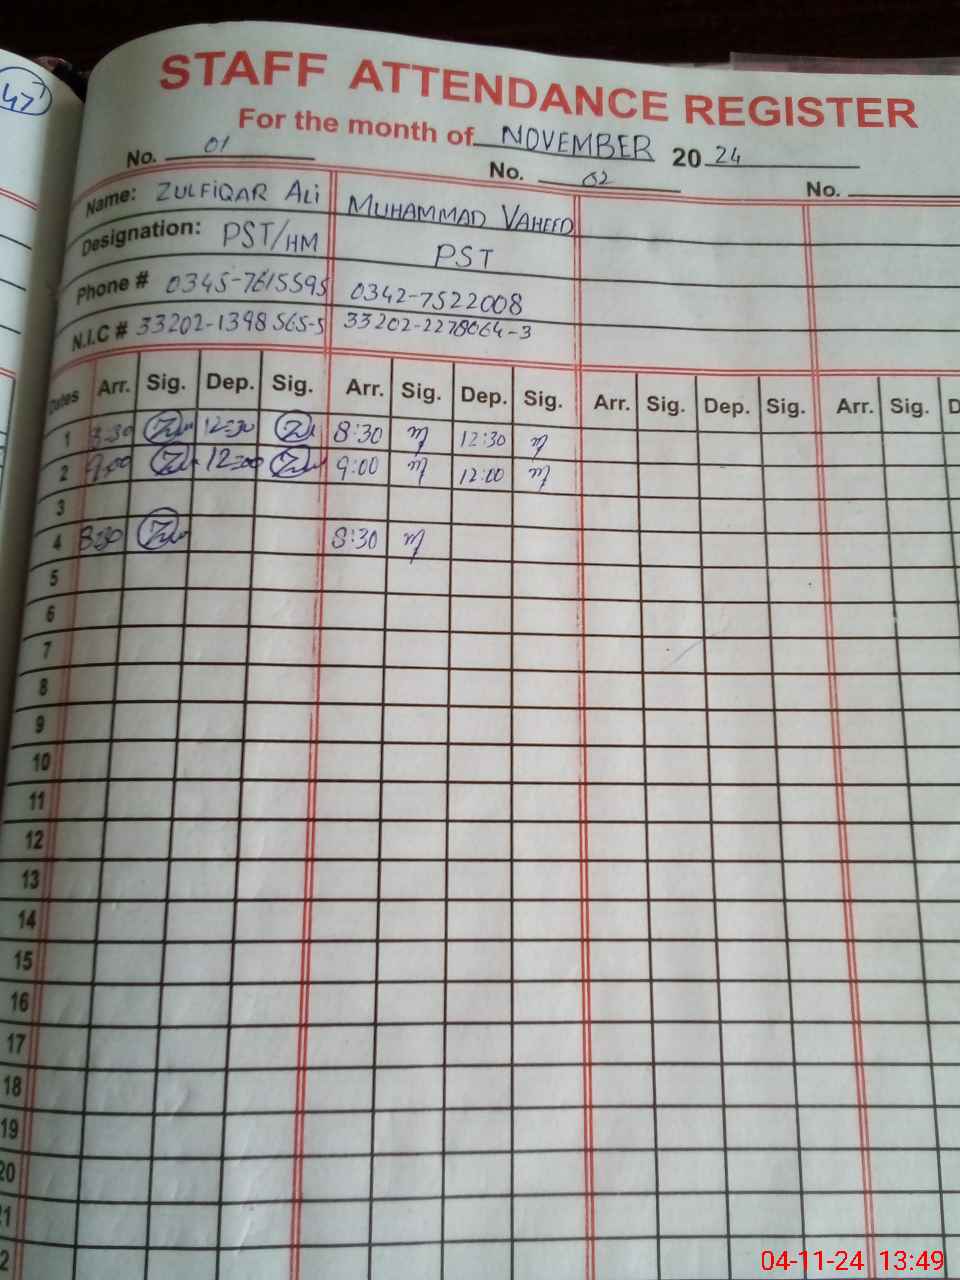 47
STAFF ATTENDANCE REGISTER
For the month of NOVEMBER 2024
No. 01 No. 02 No.
Name: ZULFIQAR ALI MUHAMMAD VAHEED
Designation: PST/HM PST
Phone # 0345-7615595 0342-7522008
N.I.C # 33202-1398565-5 33202-2278064-3
Dates Arr. Sig. Dep. Sig. Arr. Sig. Dep. Sig. Arr. Sig. Dep. Sig. Arr. Sig. D
1 8:30 12:30 8:30 12:30
2 9:00 12:00 9:00 12:00
3
4 8:30 8:30
5
6
7
8
9
10
11
12
13
14
15
16
17
18
19
20
1
2
04-11-24 13:49